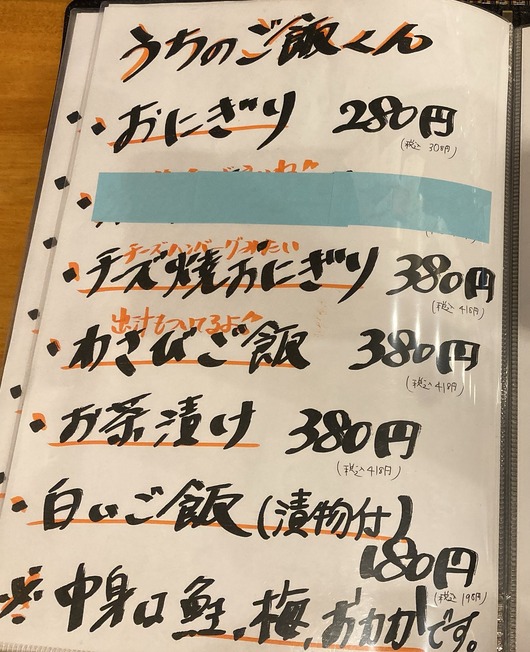 うちのご飯くん
おにぎり 280円
(税込 308円)
チーズハンバーグみたい
チーズ焼おにぎり 380円
(税込 418円)
出汁もつけてるよ
わさびご飯 380円
(税込 418円)
お茶漬け 380円
(税込 418円)
白いご飯(漬物付)
180円
(税込 198円)
※中身は鮭、梅、おかかです。